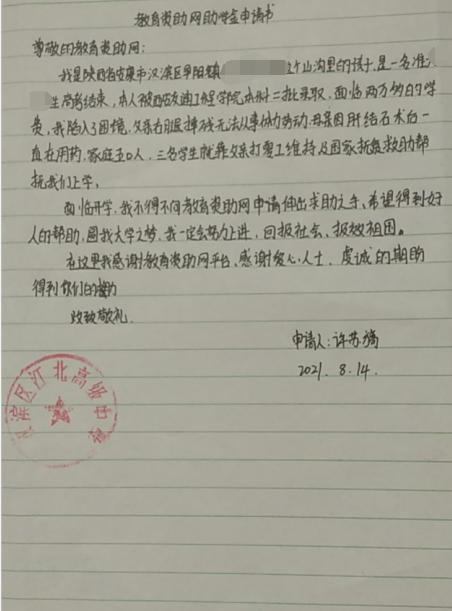 教育资助网助学金申请书
尊敬的教育资助网：
我是陕西省安康市汉滨区早阳镇 这个山沟里的孩子，是一名准
生高考结束，本人被西安交通工程学院本科二批录取，面临两万多的学
费，我陷入了困境，父亲右腿摔残无法从事体力劳动，母亲因肝结石术后一
直在用药，家庭五口人，三名学生就靠父亲打零工维持及国家扶贫救助帮
扶我们上学。
面临开学，我不得不向教育资助网申请伸出求助之手，希望得到好
人的帮助，圆我大学之梦，我一定会努力上进，回报社会、报效祖国。
在这里我感谢教育资助网平台、感谢爱心人士，虔诚的期盼
得到你们的帮助
此致敬礼
申请人：许苏
2021. 8.14.
滨区江北高级中